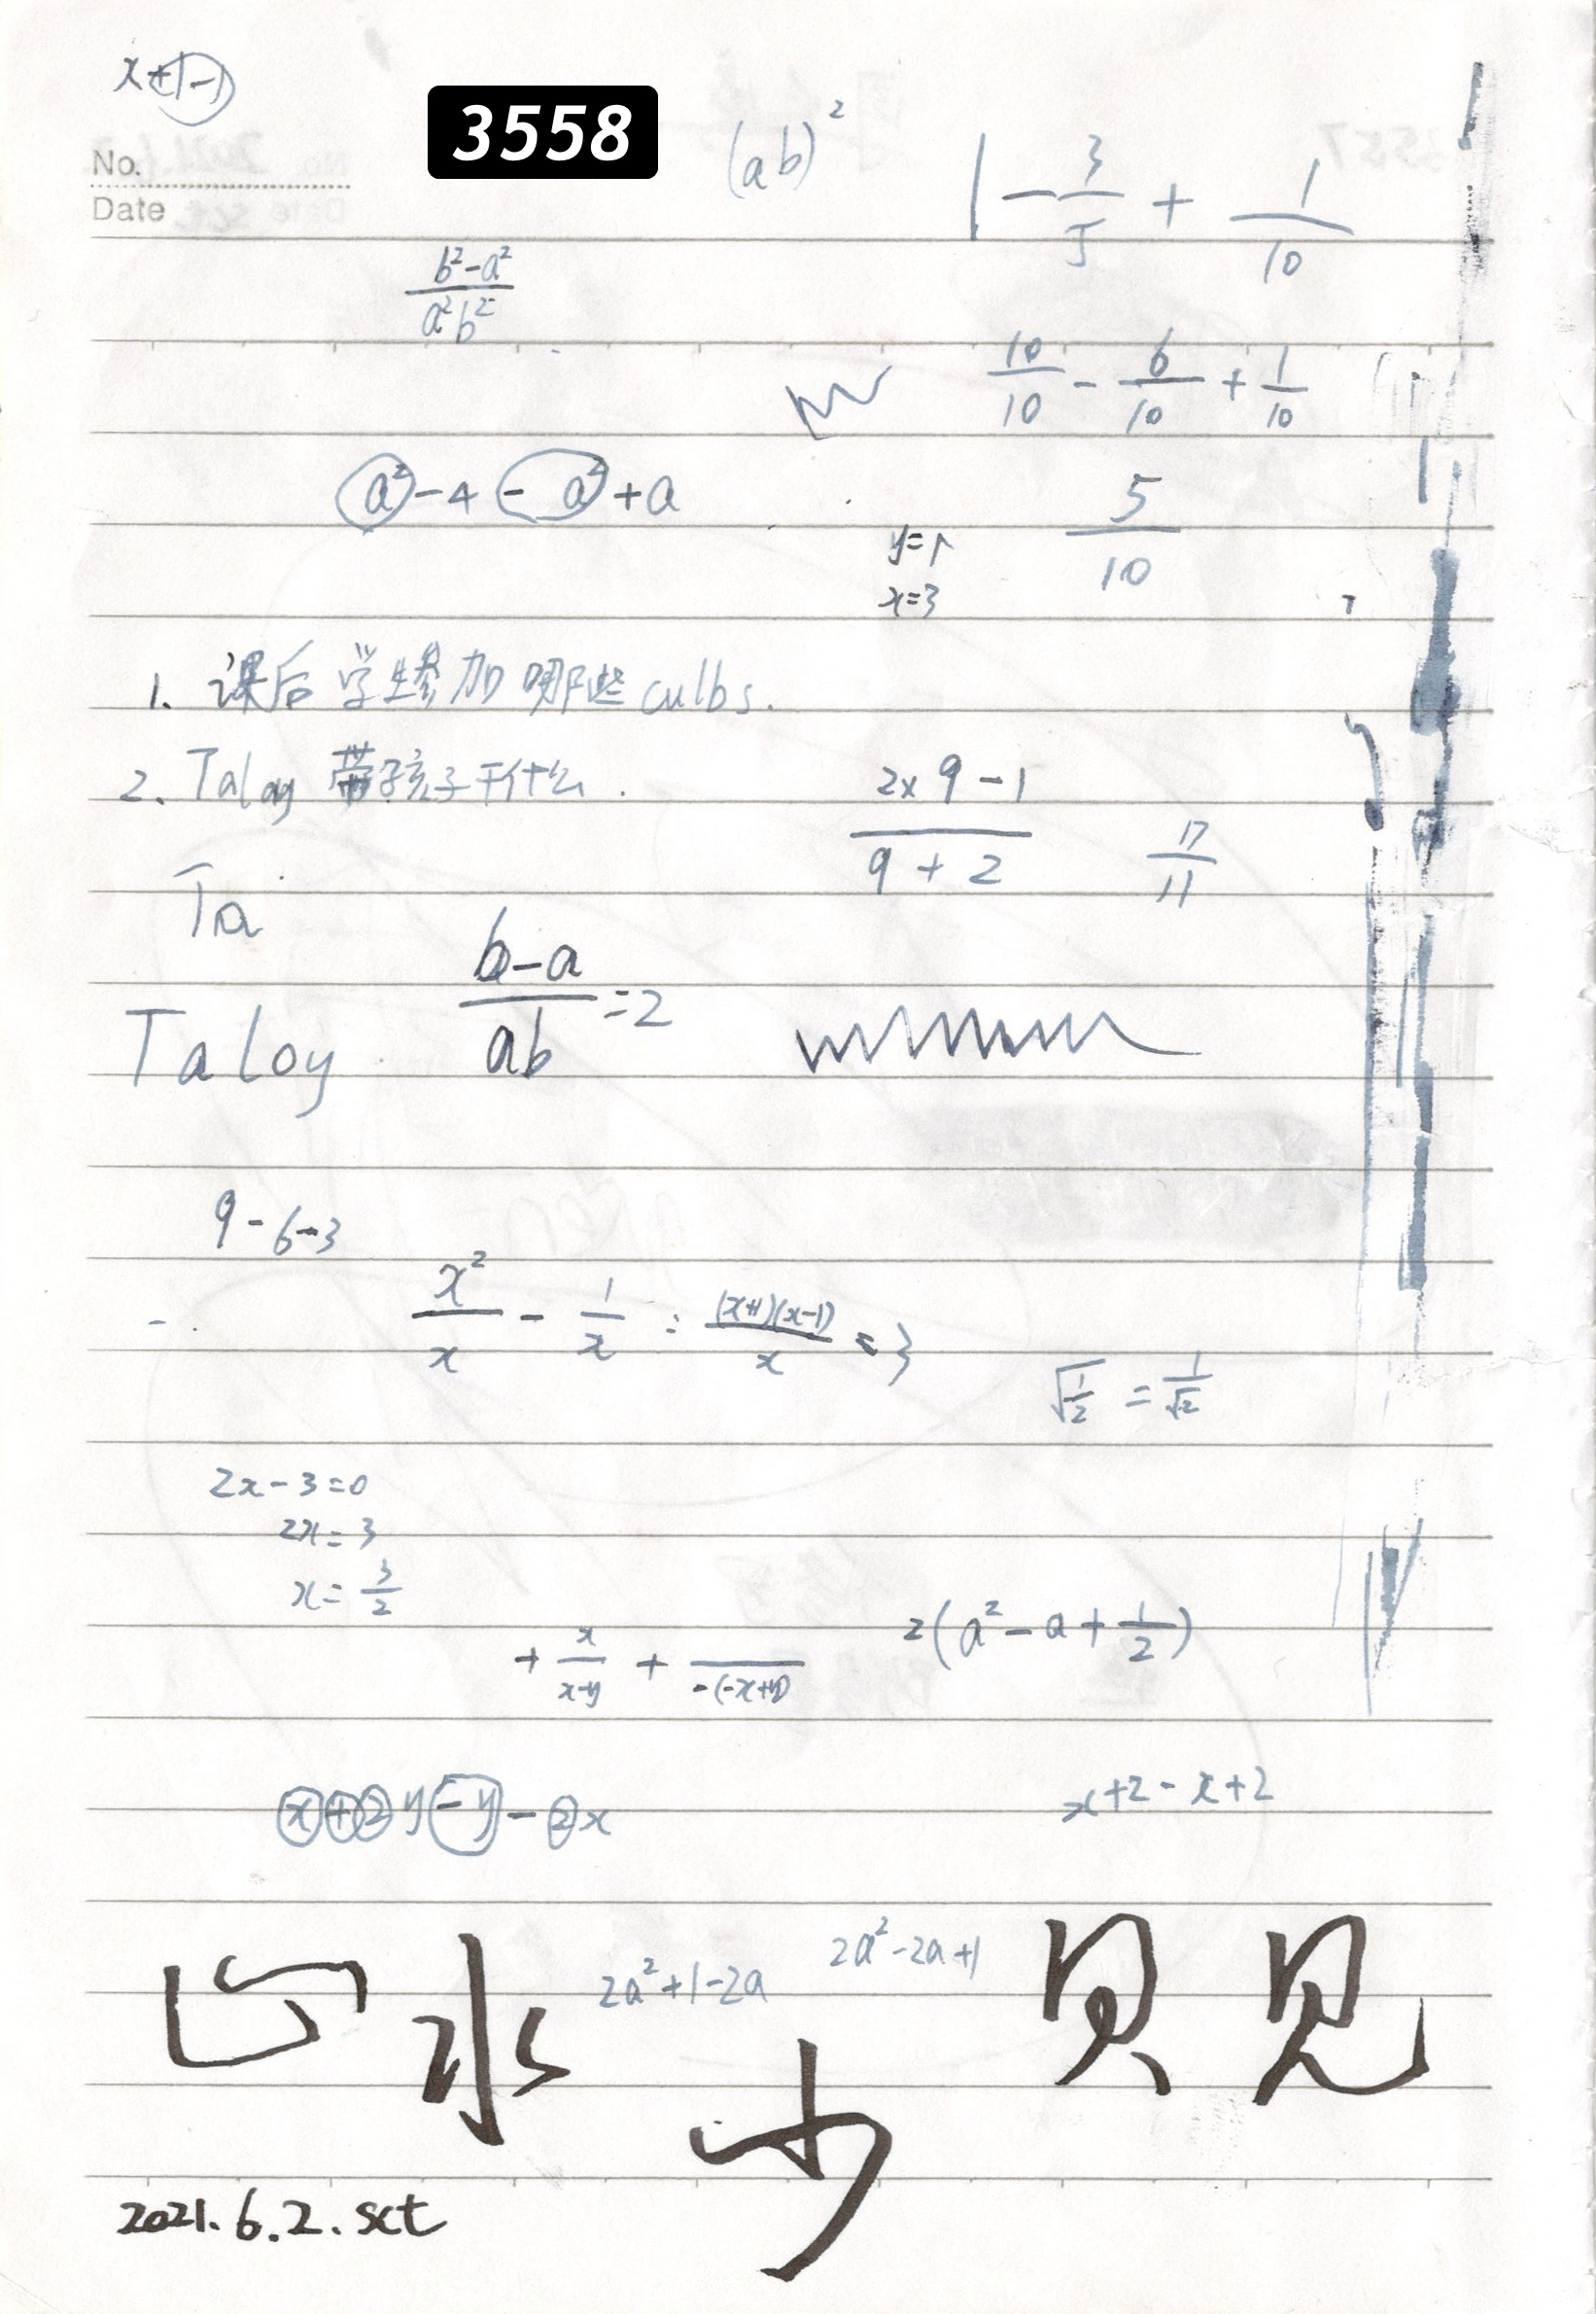 x+1-1
3558
No.
Date
(ab)²
1 - 3/5 + 1/10
b²-a² / a²b²
10/10 - 6/10 + 1/10
a²-4-a²+a
5/10
y=1
x=3
1. 课后学生参加哪些culbs.
2. Talay 带孩子干什么.
2x9-1 / 9+2
17/11
Ta
b-a / ab =2
Taloy
9-6-3
x²/x - 1/x = (x+1)(x-1)/x = 3
√1/2 = 1/√2
2x-3=0
2x=3
x=3/2
+ x/x-y + /-(-x+y)
2(a²-a+1/2)
x+2y-y-2x
x+2-x+2
2a²+1-2a
2a²-2a+1
水
少
贝 见
2021.6.2.sct